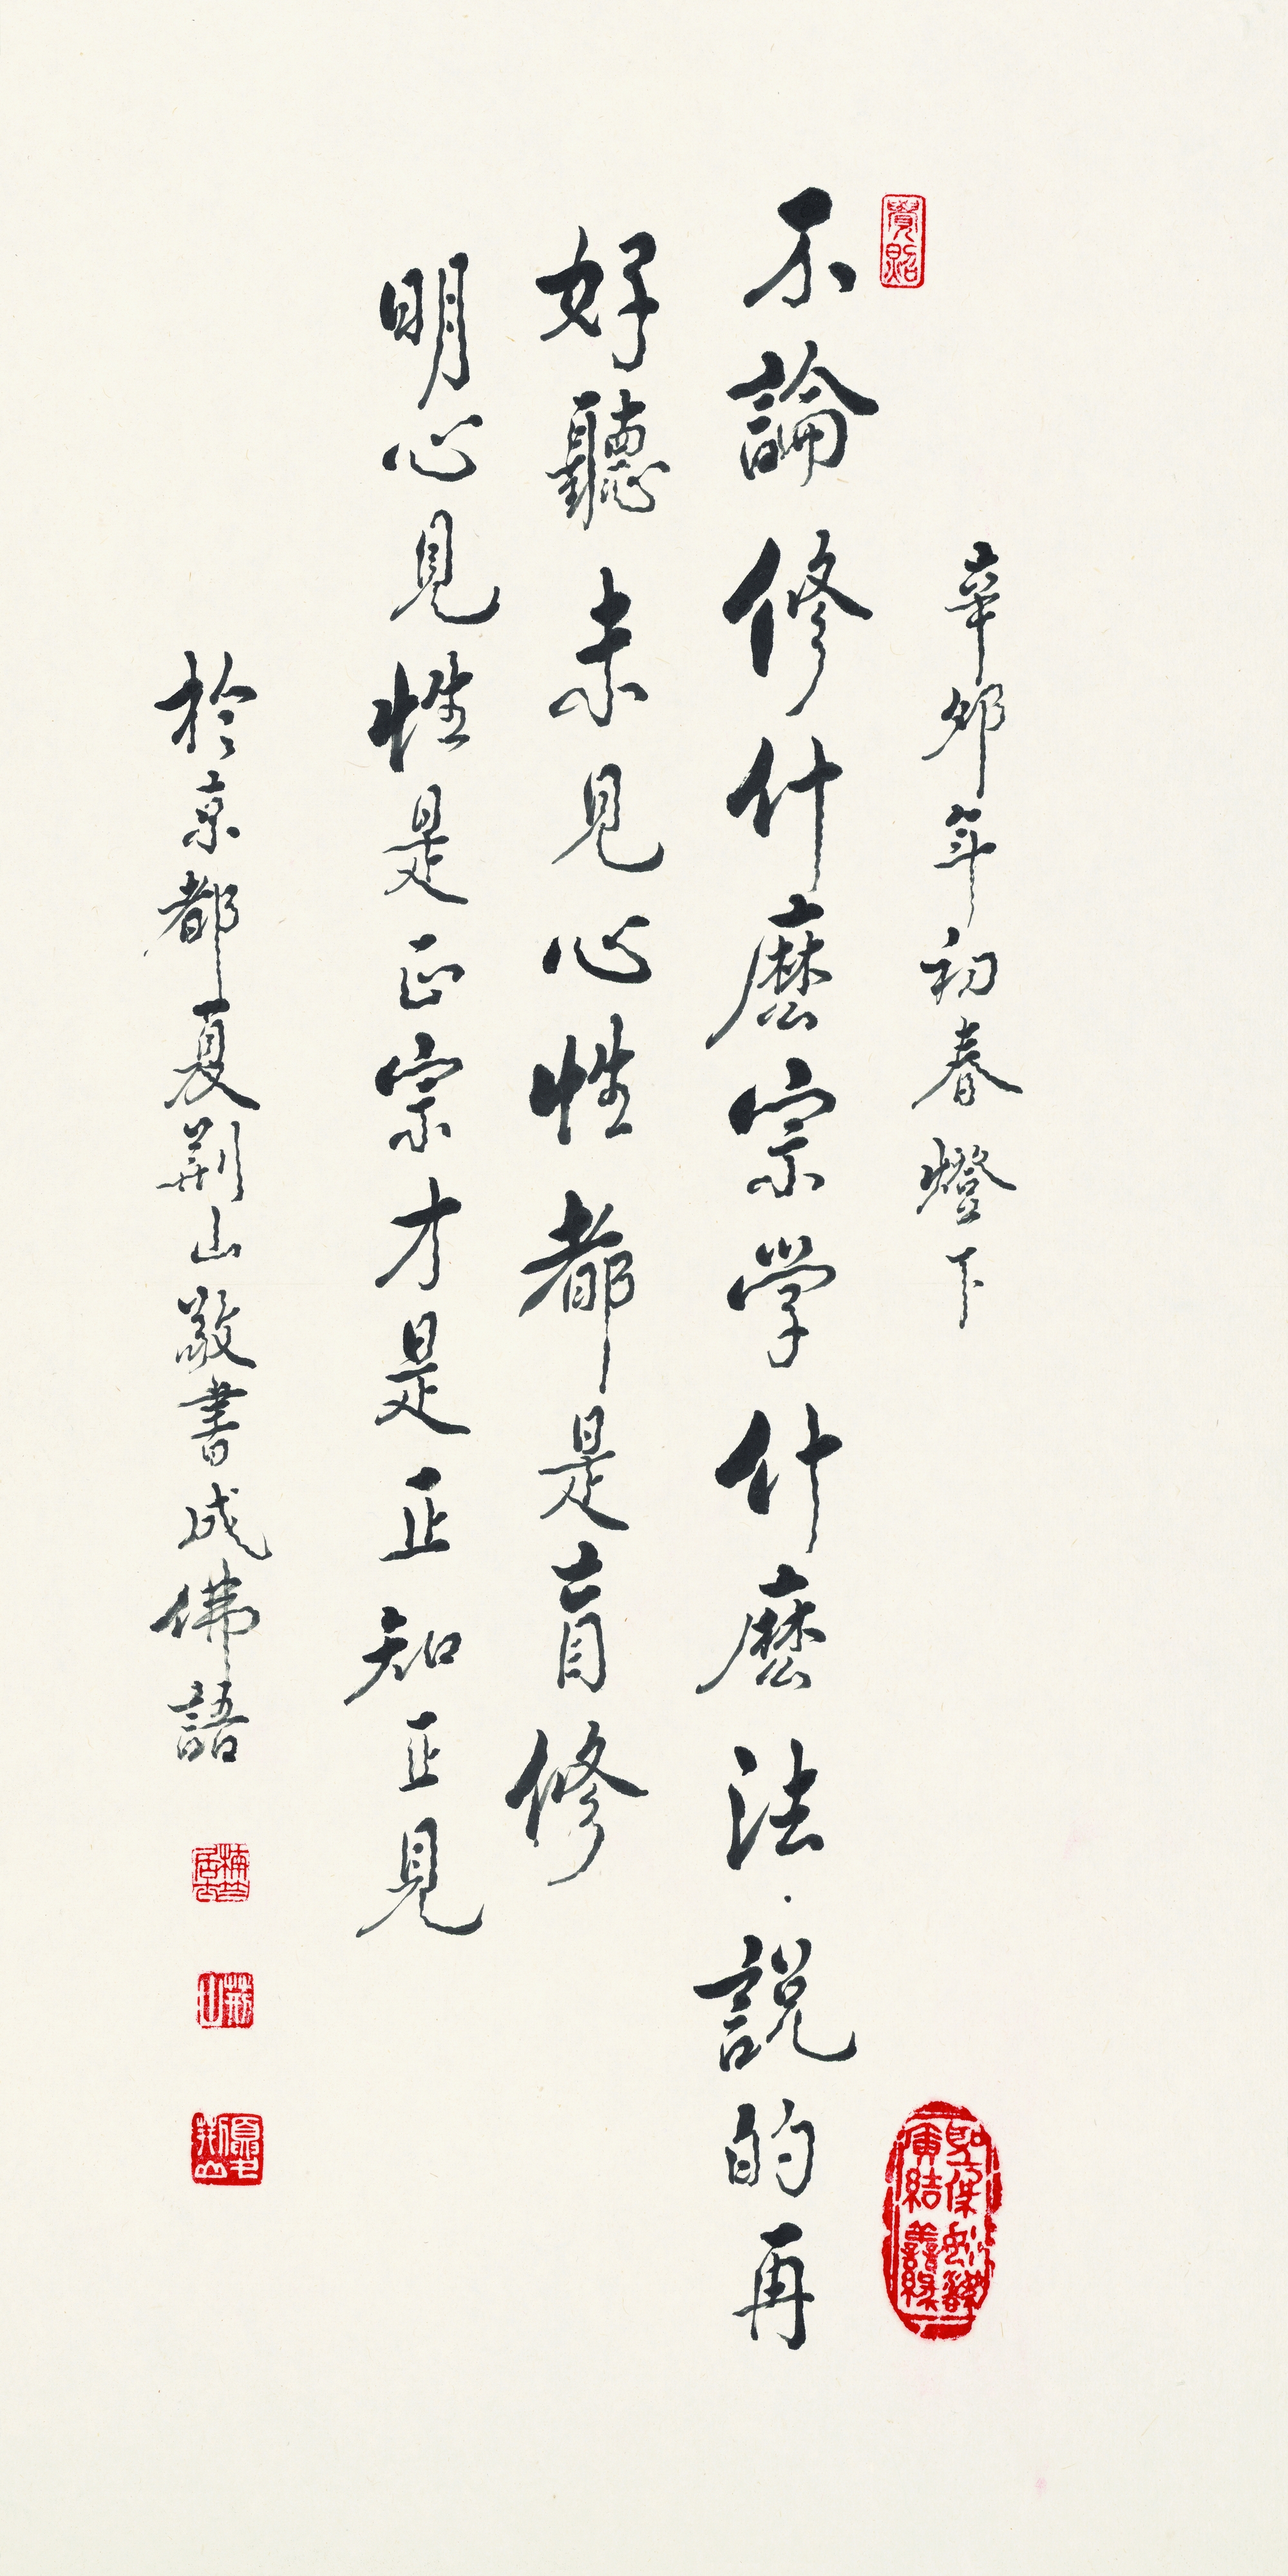 辛卯年初春燈下
不論修什麼宗学什麼法·説的再
好聽未見心性都是盲修
明心見性是正宗才是正知正見
於京都夏荊山敬書成佛語
荊山